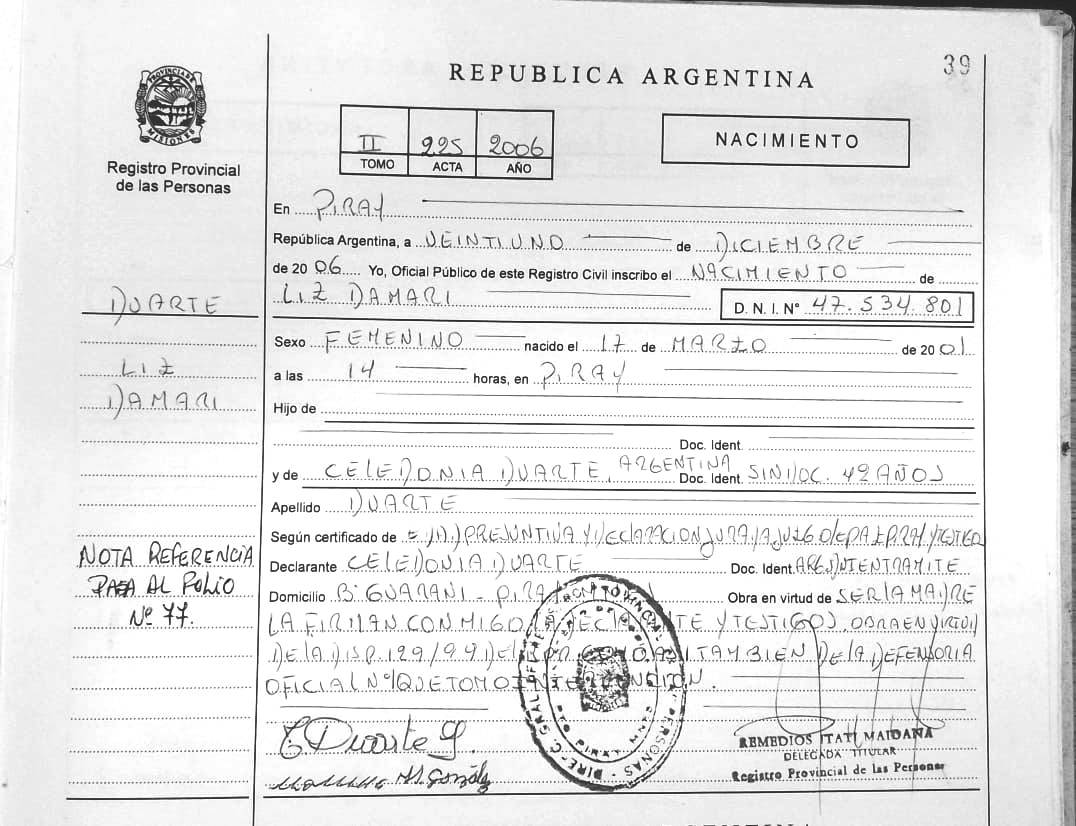 39
REPUBLICA ARGENTINA
PROVINCIA DE
MISIONES
Registro Provincial
de las Personas
II 225 2006
TOMO ACTA AÑO
NACIMIENTO
En PIRAY
República Argentina, a VEINTIUNO de DICIEMBRE
de 2006 Yo, Oficial Público de este Registro Civil inscribo el NACIMIENTO de
LIZ DAMARI D. N. I. Nº 47.534.801
DUARTE
LIZ
DAMARI
Sexo FEMENINO nacido el 17 de MARZO de 2001
a las 14 horas, en PIRAY
Hijo de
Doc. Ident.
y de CELEDONIA DUARTE, ARGENTINA Doc. Ident. SIN DOC. 42 AÑOS
Apellido DUARTE
Según certificado de PRESUNTIVA Y DECLARACION JURADA
Declarante CELEDONIA DUARTE Doc. Ident. ARG. DNI EN TRAMITE
Domicilio Bº GUARANI - PIRAY Obra en virtud de SER LA MADRE
LA FIRMAN CONMIGO LA DECLARANTE Y TESTIGOS, OBRA EN VIRTUD
DE LA DISP. 129/99 DEL COMO ASI TAMBIEN DE LA DEFENSORIA
OFICIAL Nº 1 QUE TOMO INTERVENCION.
NOTA REFERENCIA
PASA AL FOLIO
Nº 77.
C Duarte G.
González
REMEDIOS ITATI MAIDANA
DELEGADA TITULAR
Registro Provincial de las Personas